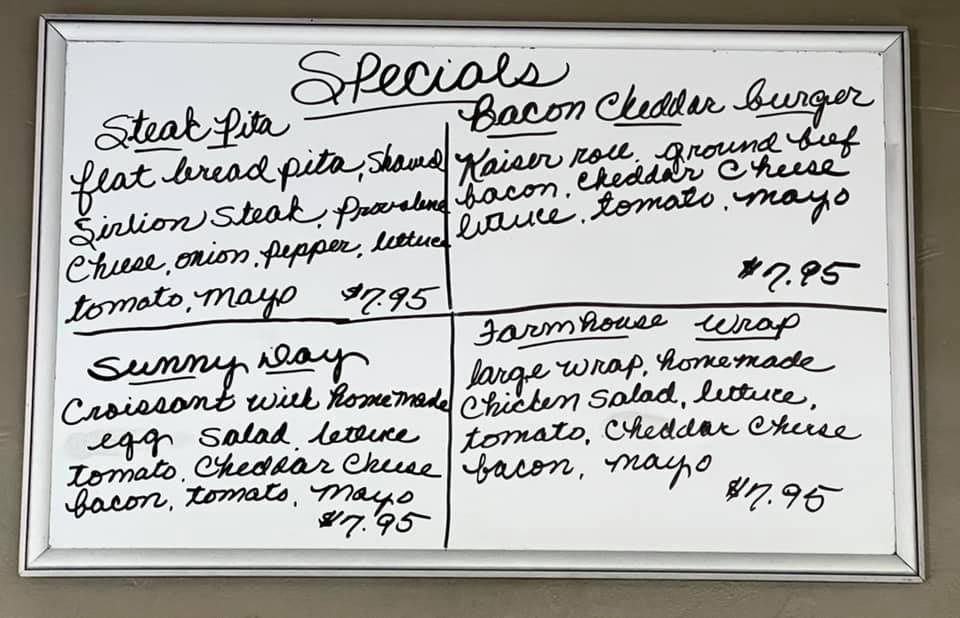 Specials
Steak Pita
flat bread pita, shaved
Sirlion steak, Provalone
Cheese, onion, pepper, lettuce
tomato, mayo $7.95
Bacon Cheddar burger
Kaiser roll, ground beef
bacon, cheddar cheese
lettuce, tomato, mayo
$7.95
Sunny Day
Croissant with homemade
egg salad, lettuce
tomato, cheddar cheese
bacon, tomato, mayo
$7.95
Farmhouse wrap
large wrap, homemade
chicken salad, lettuce,
tomato, cheddar cheese
bacon, mayo
$7.95